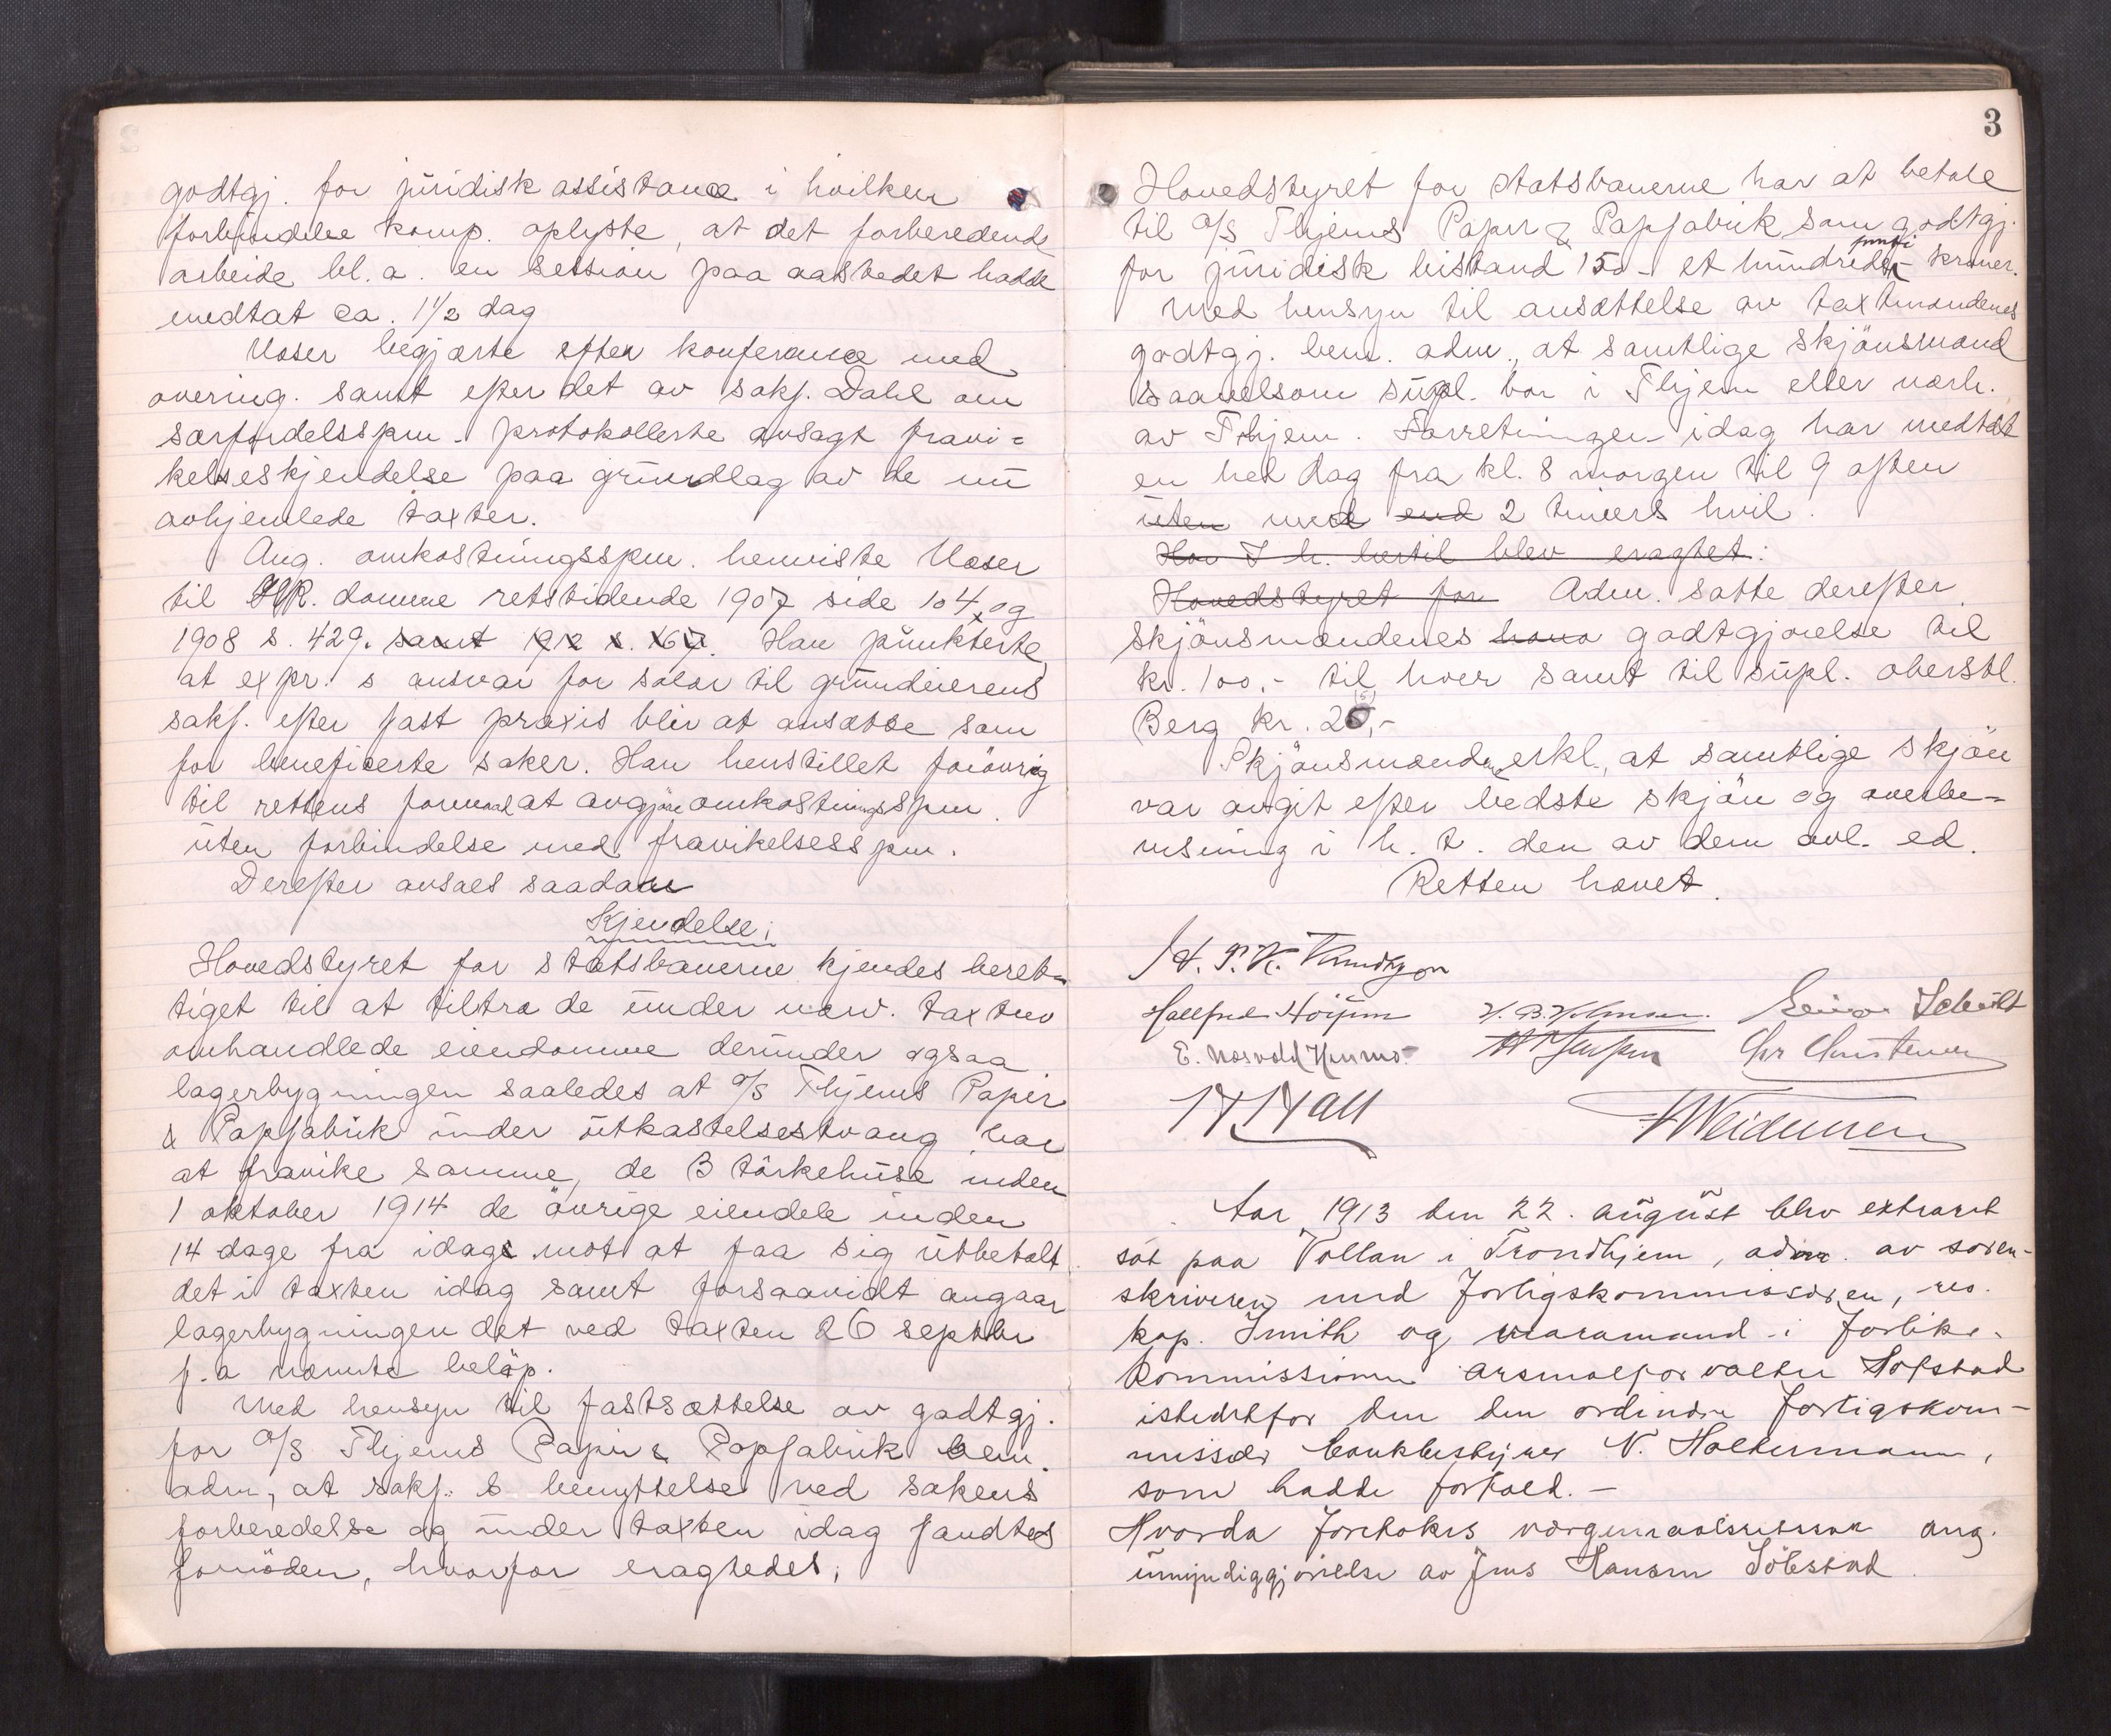 godtgj. for juridisk assistance i hvilken
forbindelse komp. oplyste, at det forberedende
arbeide bl. a. en session paa aastedet hadde
medtat ca. 1½ dag
Moser begjærte efter konferance med
overing. samt efter det av sakf. Dahl om
særfordelsspm. protokollerte avsagt fravi=
kelseskjendelse paa grundlag av de nu
avhjemlede taxter.
Ang. omkostningsspm. henviste Moser
til HR. domme retstidende 1907 side 104 og
1908 s. 429. samt 1912 s. 167. Han punkterte
at expr.s ansvar for salær til grundeierens
sakf. efter fast praxis blir at ansætte som
for beneficerte saker. Han henstillet forövrig
til rettens formaal at avgjöre omkostningsspm.
uten forbindelse med fravikelsesspm.
Derefter avsaes saadan
Kjendelse:
Hovedstyret for statsbanerne kjendes beret-
tiget til at tiltræde under nærv. taxter
omhandlede eiendomme derunder ogsaa
lagerbygningen saaledes at a/s Thjems Papir
& Papfabrik under utkastelsestvang har
at fravike samme, de 3 törkehuse inden
1 oktober 1914 de övrige eiendele inden
14 dage fra idag mot at faa sig utbetalt
det i taxten idag samt forsaavidt angaar
lagerbygningen det ved taxten 26 septbr
f.a nævnte belöp.
Med hensyn til fastsættelse av godtgj.
for a/s Thjems Papir & Papfabrik bem.
adm, at sakf.s benyttelse ved sakens
forberedelse og under taxten idag fandtes
fornöden, hvorfor eragtedes;
3
Hovedstyret for statsbanerne har at betale
til a/s Thjems Papir & Papfabrik som godtgj.
for juridisk bistand 150 - et hundrede femti - kroner.
Med hensyn til ansættelse av taxtmændenes
godtgj. bem. adm., at samtlige skjönsmænd
saavelsom supl. bor i Thjem eller nærh.
av Thjem. Forretningen idag har medtat
en hel dag fra kl. 8 morgen til 9 aften
uten med end 2 timers hvil.
Hov T h. hertil blev eragtet:
Hovedstyret for Adm. satte derefter
skjönsmændenes hono godtgjörelse til
kr. 100.- til hver samt til supl. oberstl.
Berg kr. 25,-
Skjönsmænden erkl, at samtlige skjön
var avgit efter bedste skjön og overbe-
visning i h. t. den av dem avl. ed.
Retten hævet.
Knudtzon
Hallfred Höijem Einar Schult
E. Nosvold Chr Christensen
H Hall
H Weidemann
Aar 1913 den 22. august blev extraret
sat paa Vollan i Trondhjem, adm. av soren-
skriveren med Forligskommissæren, res.
kap. Smith og varamand i Forliks-
kommissionen arsenalforvalter Hofstad
istedetfor den den ordinære Forligskom-
missær bankbestyrer N. Holtermann,
som hadde forfald. -
Hvorda foretokes vergemaalsretssak ang.
umyndiggjörelse av Jens Hansen Söbstad